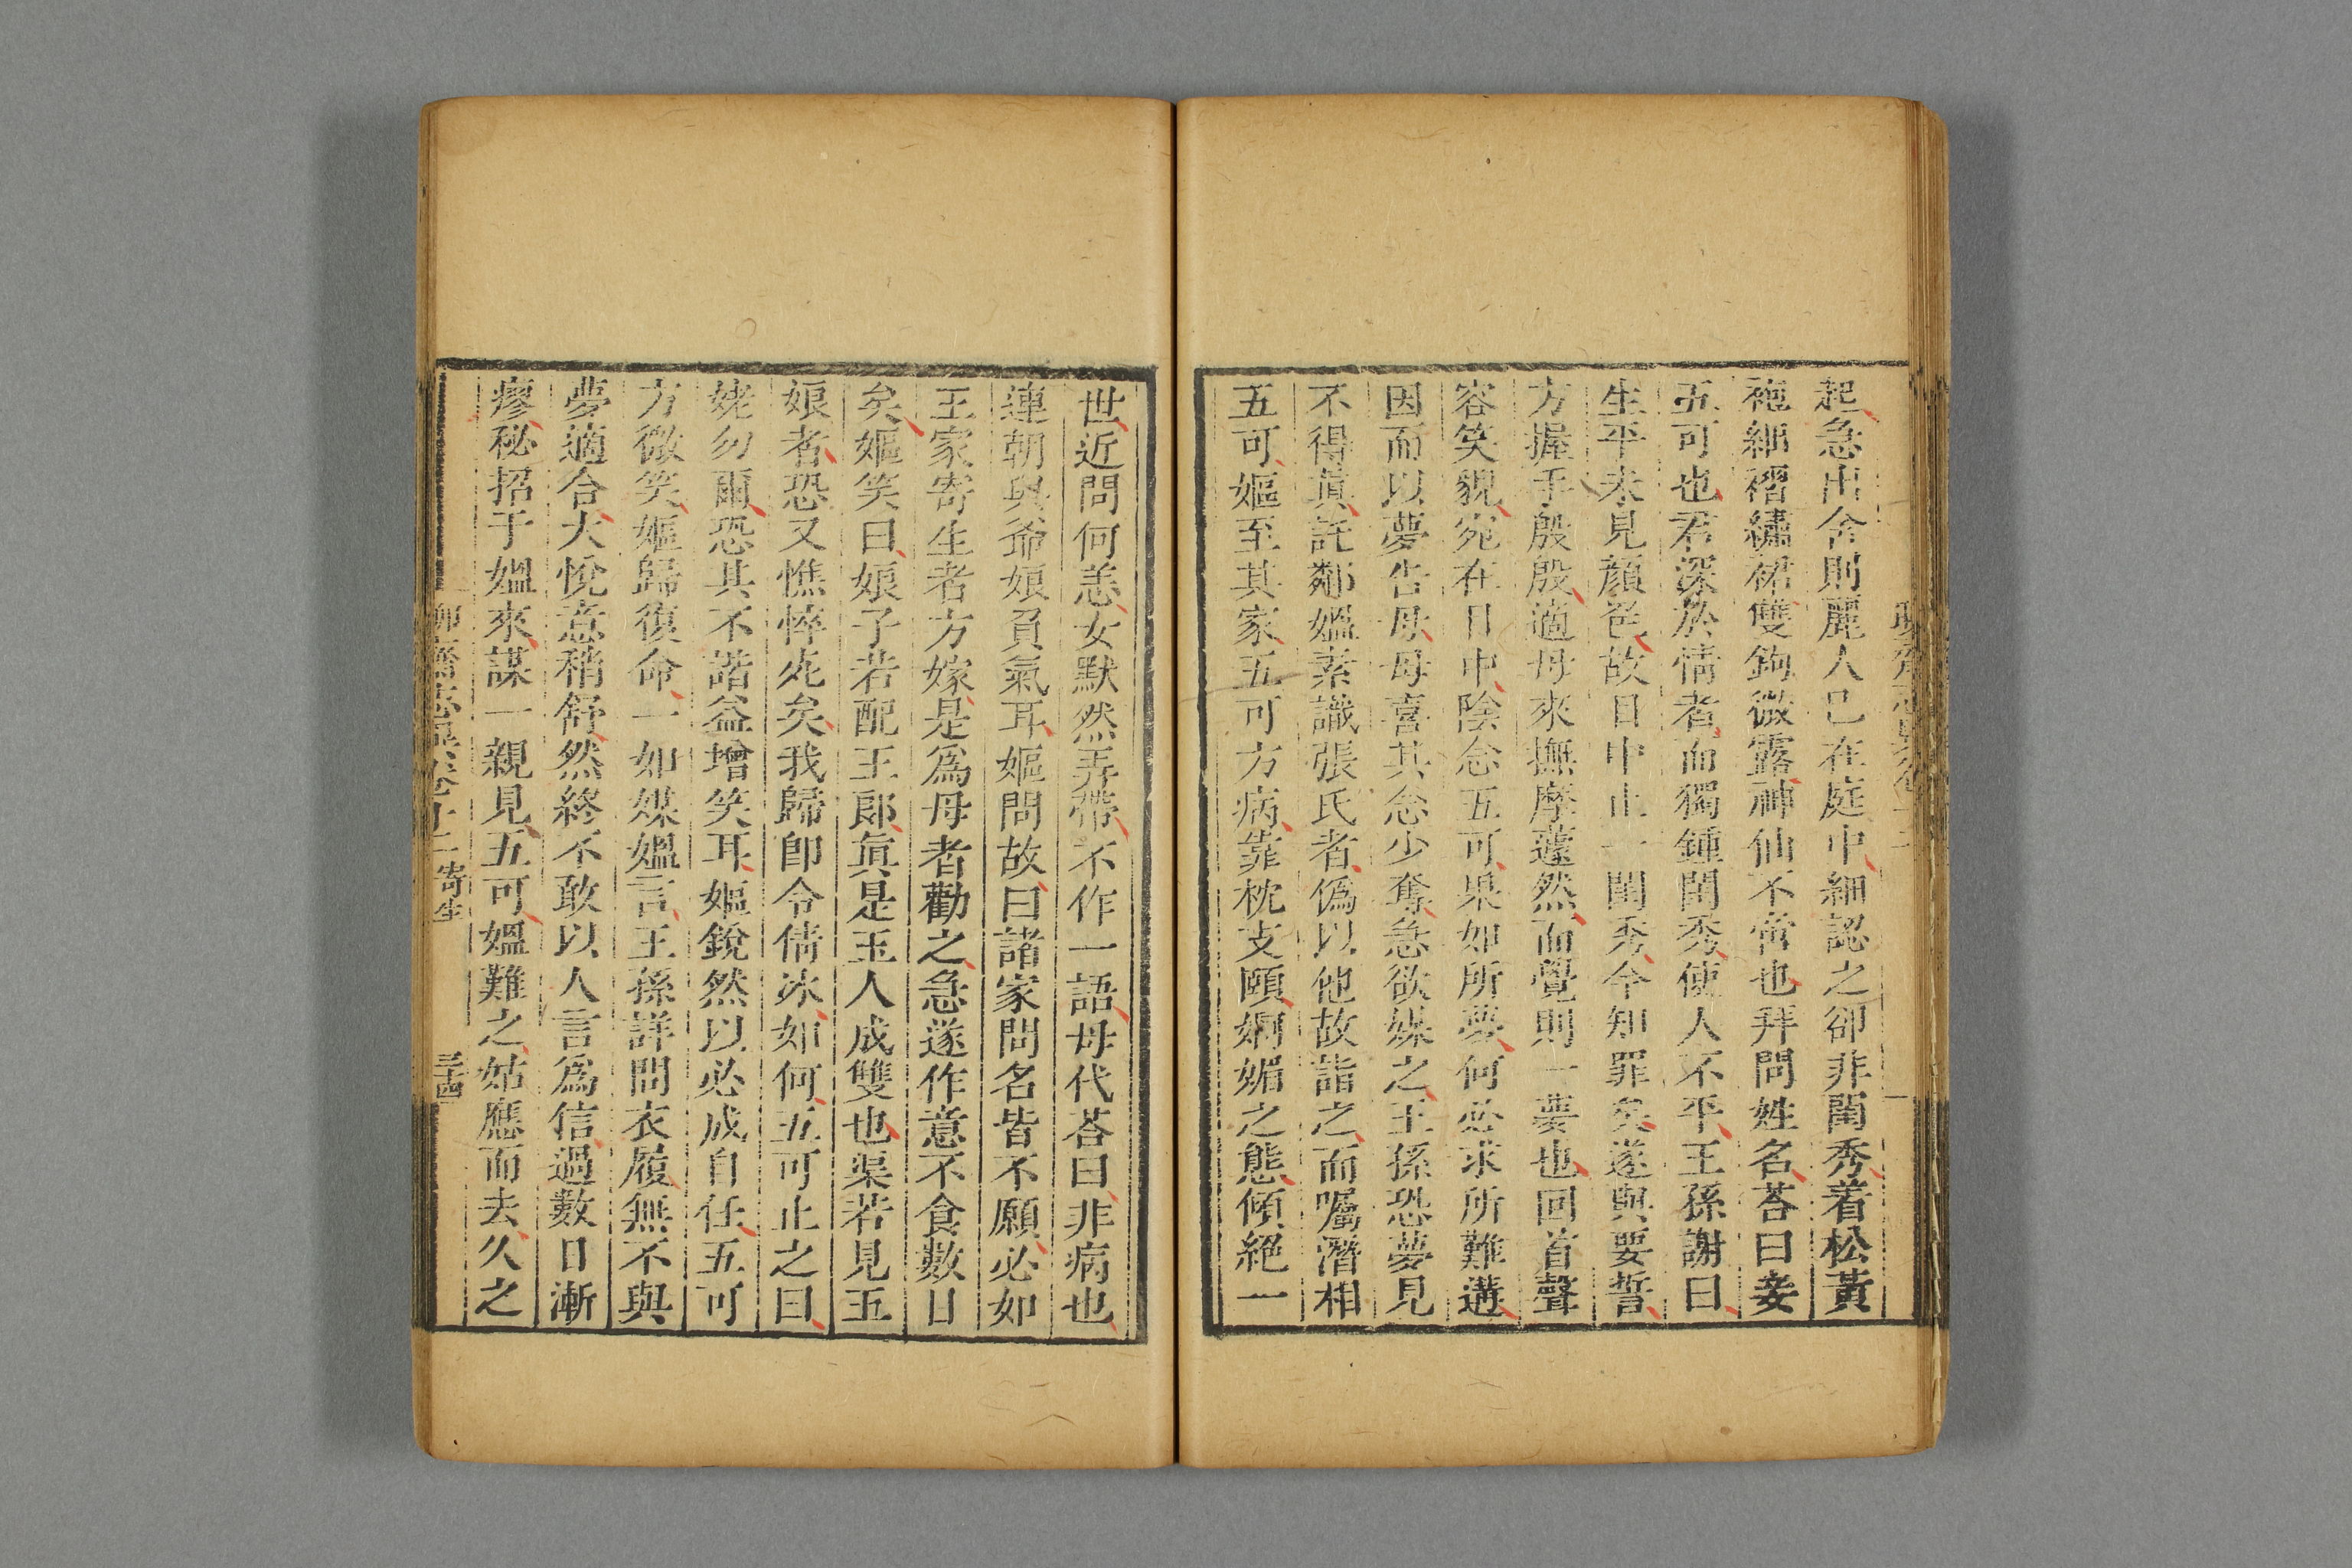 起急出舍則麗人已在庭中細認之卻非閨秀着松黃
袍細褶繡裙雙鉤微露神仙不啻也拜問姓名荅曰妾
五可也君深於情者而獨鍾閨秀使人不平王孫謝曰
生平未見顏色故目中止一閨秀今知罪矣遂與要誓
方握手殷殷適母來撫摩蘧然而覺則一夢也回首聲
容笑貌宛在目中陰念五可果如所夢何必求所難遘
因而以夢告母母喜其念少奪急欲媒之王孫恐夢見
不得眞託鄰媼素識張氏者僞以他故詣之而囑潛相
五可嫗至其家五可方病靠枕支頤婀媚之態傾絕一
世近問何恙女默然弄帶不作一語母代荅曰非病也
連朝與爺娘負氣耳嫗問故曰諸家問名皆不願必如
王家寄生者方嫁是爲母者勸之急遂作意不食數日
矣嫗笑曰娘子若配王郎眞是玉人成雙也渠若見五
娘者恐又憔悴死矣我歸卽令倩冰如何五可止之曰
姥勿爾恐其不諧益增笑耳嫗銳然以必成自任五可
方微笑嫗歸復命一如媒媼言王孫詳問衣履無不與
夢適合大悅意稍舒然終不敢以人言爲信過數日漸
瘳秘招于媼來謀一親見五可媼難之姑應而去久之
聊齋志異卷十二 寄生 三十四